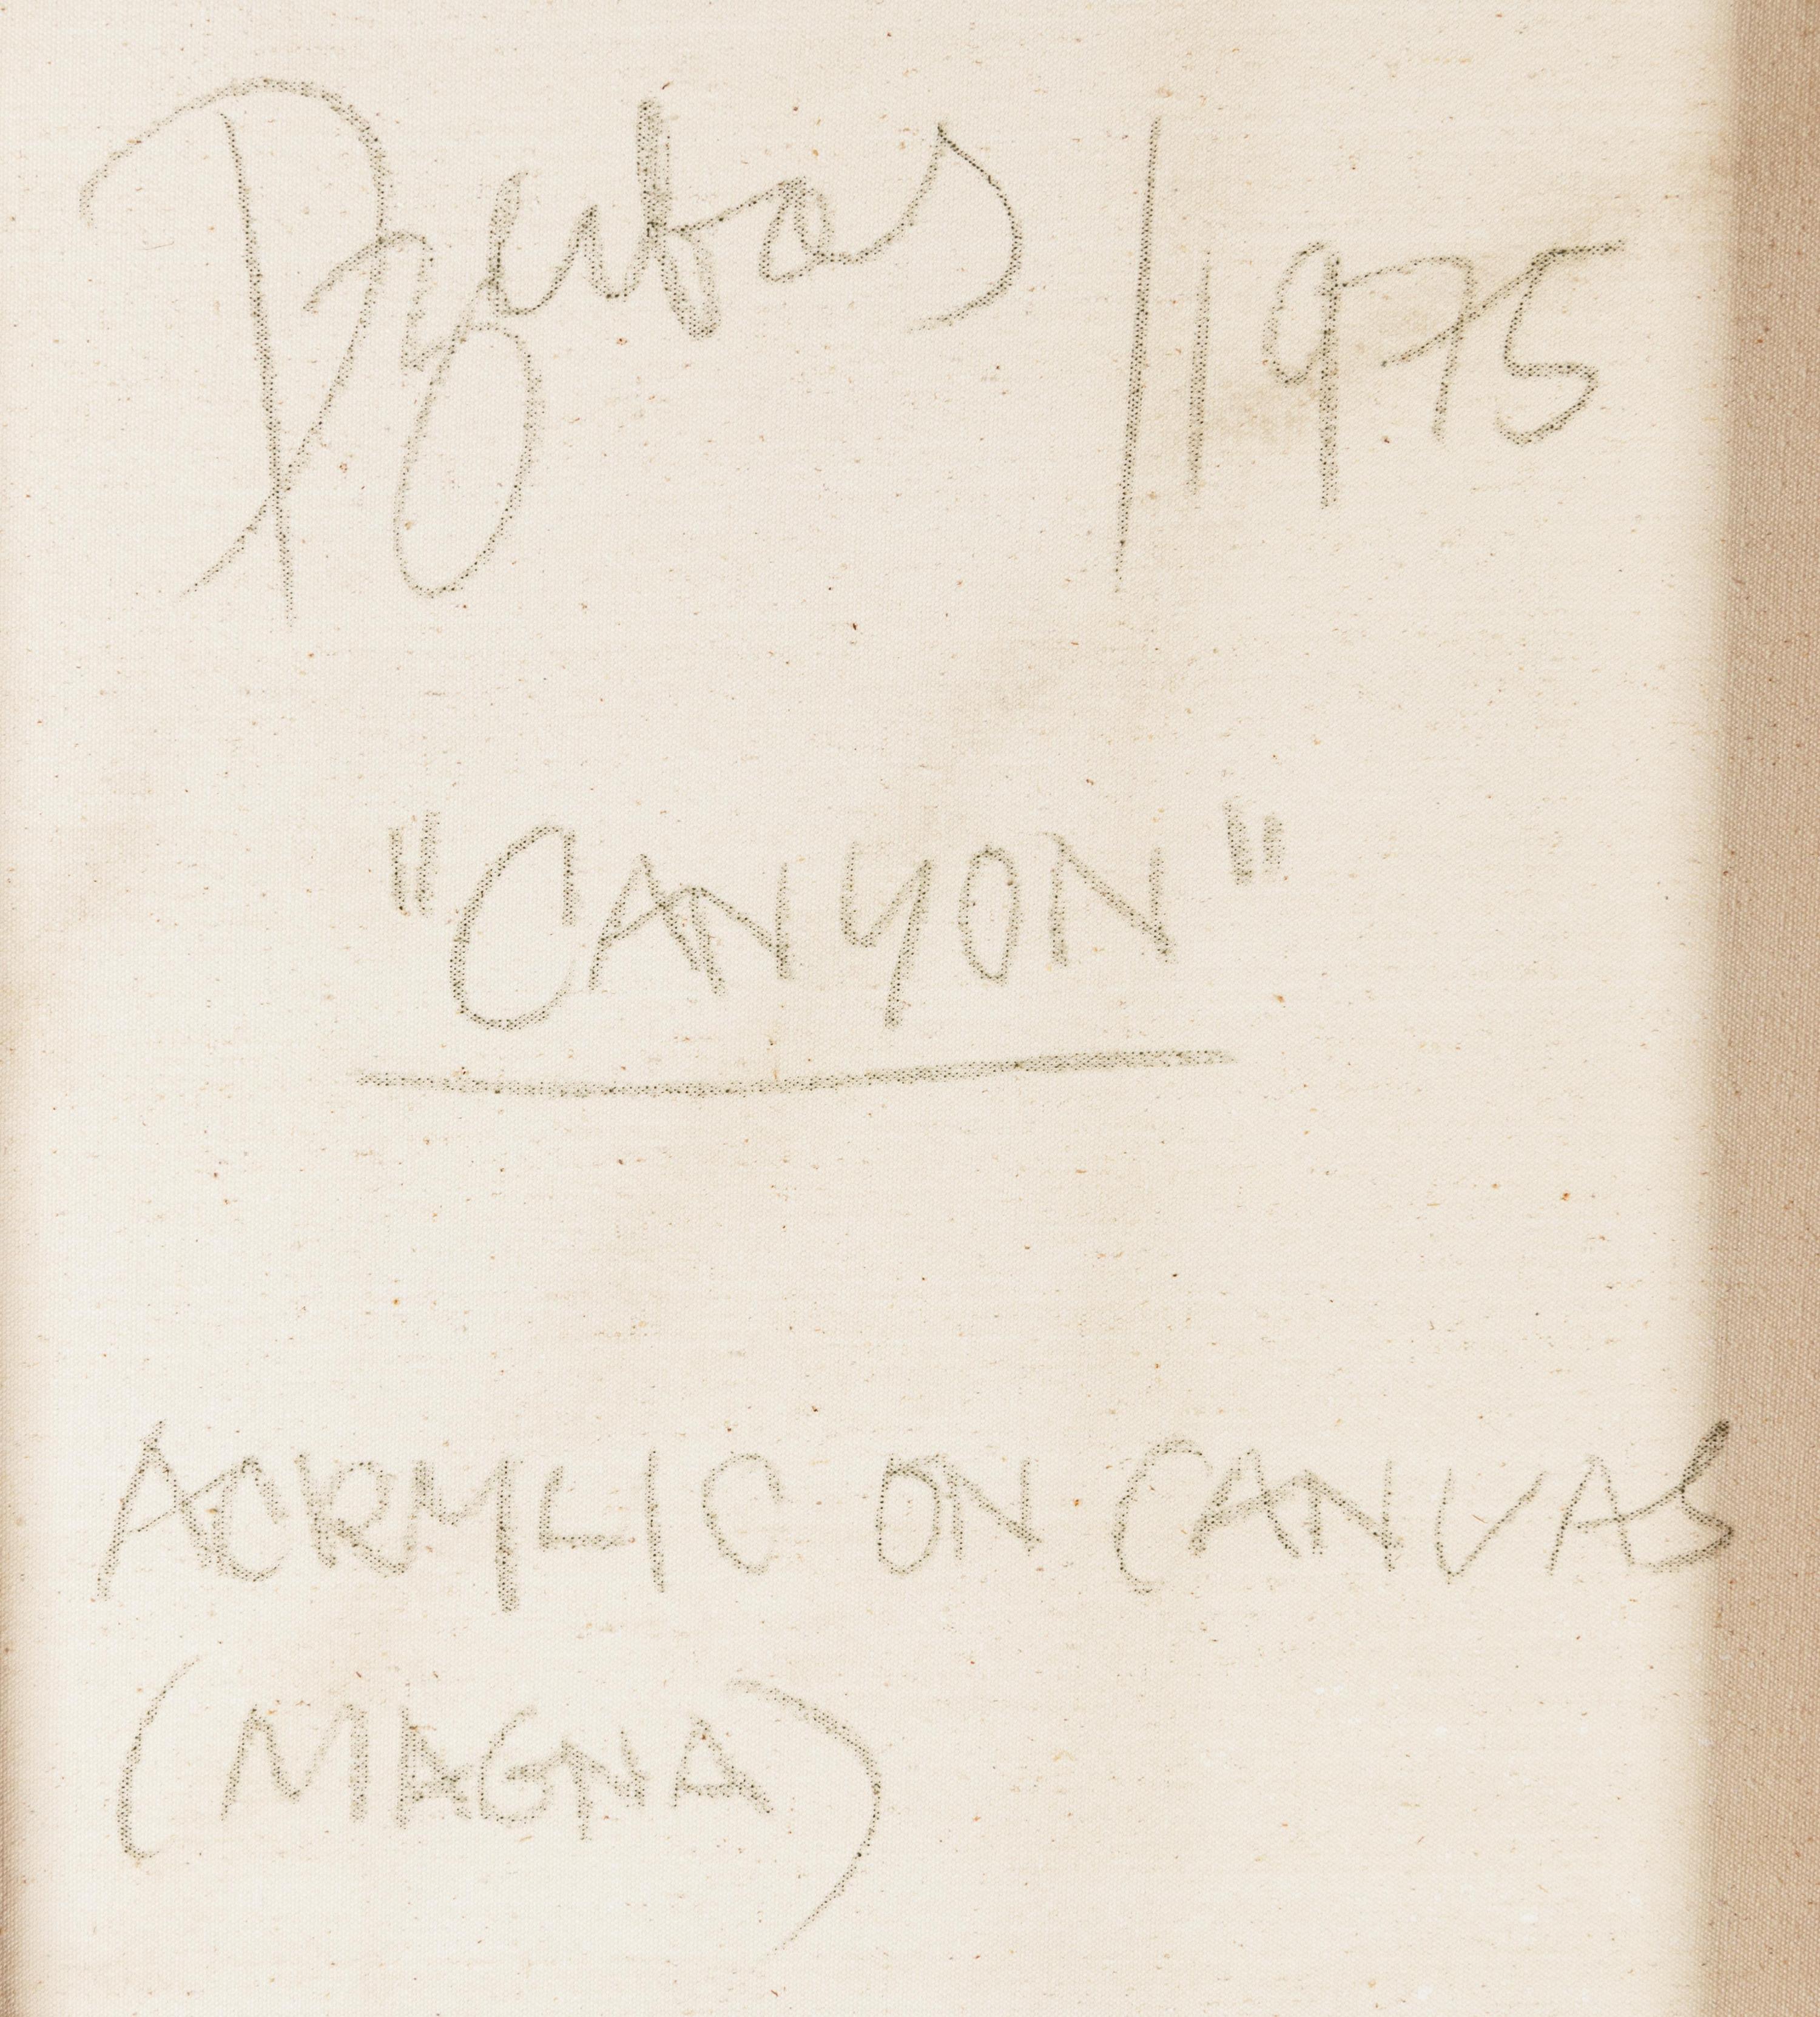 Dzubas / 1975
"CANYON"
ACRYLIC ON CANVAS
(MAGNA)